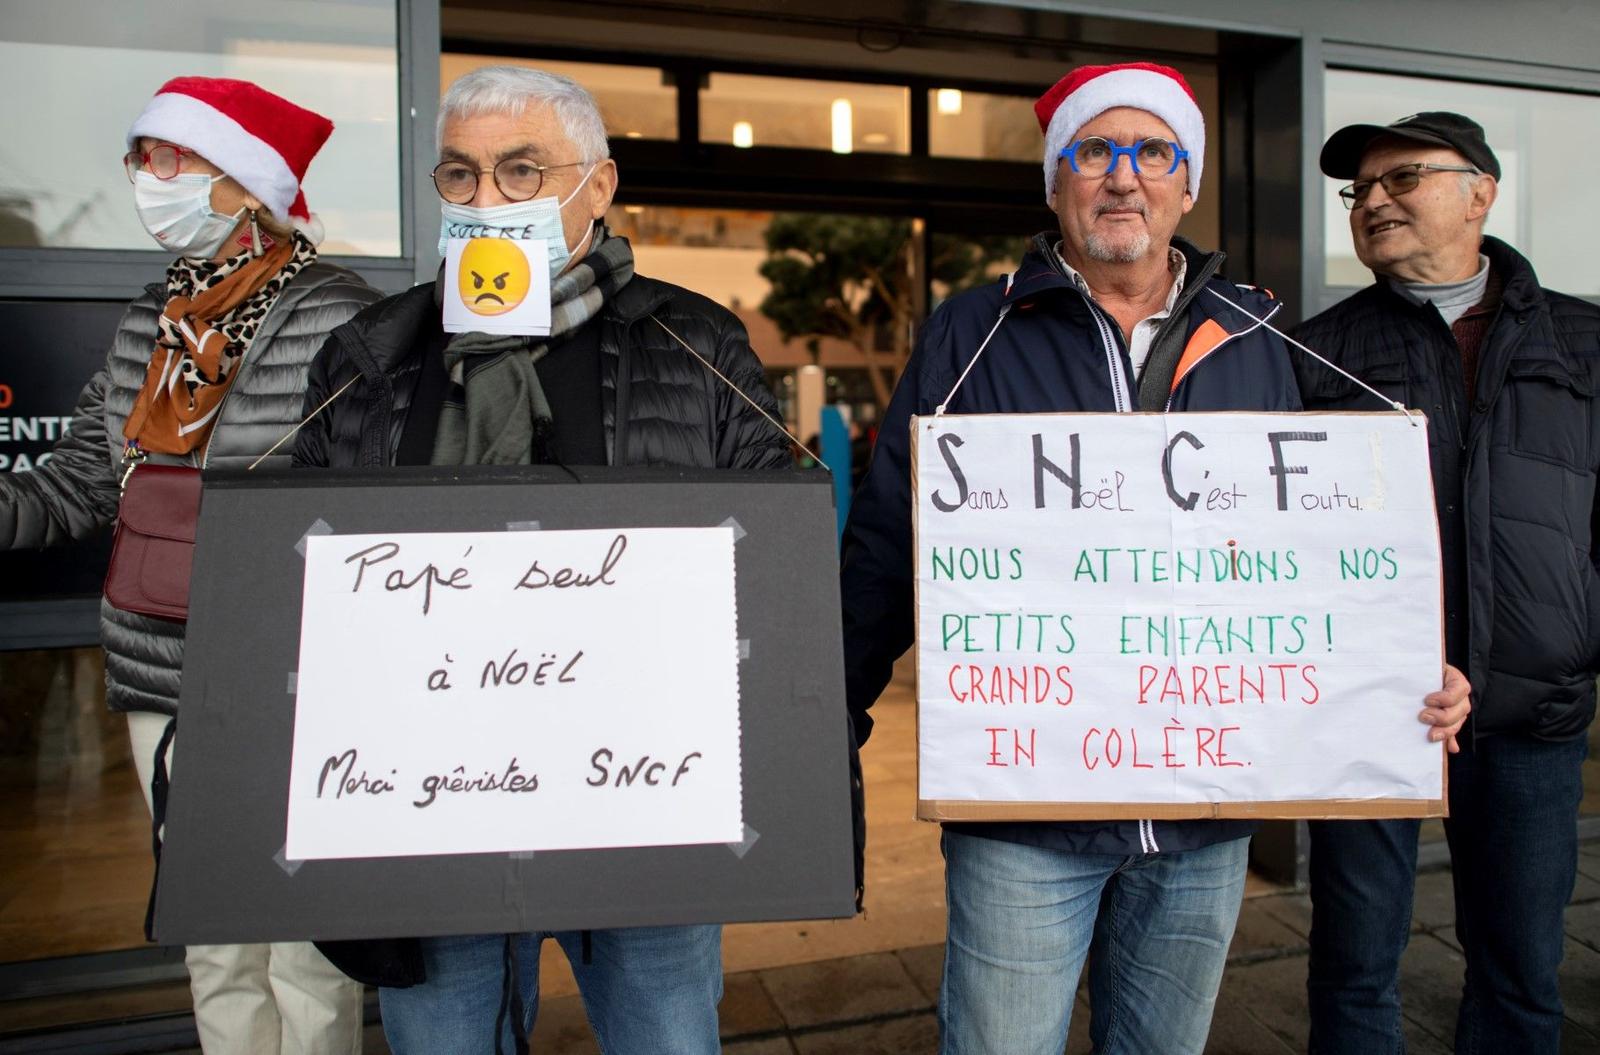 COLERE
Papé seul
à NOËL
Merci grêvistes SNCF
Sans Noël C'est Foutu.
NOUS ATTENDiONS NOS
PETiTS ENFANTS !
GRANDS PARENTS
EN COLÈRE.